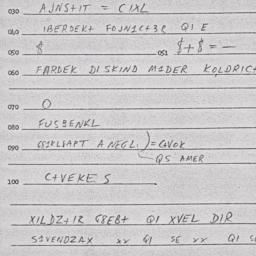 030 AJNS+IT = CIXL
040 IBERDEK+ FOJN1C+3R QI E
050 $ 051 $+$ = —
060 FARDEK DISKIND MIDER KOLDRIC+
070 O
080 FUSBENKL
090 A NEGL. )=QVOK
QS AMER
100 C+VEKE S
XILDZ+IR G8EB+ QI XVEL DIR
S1VENDZAX xx GI SE xx QI